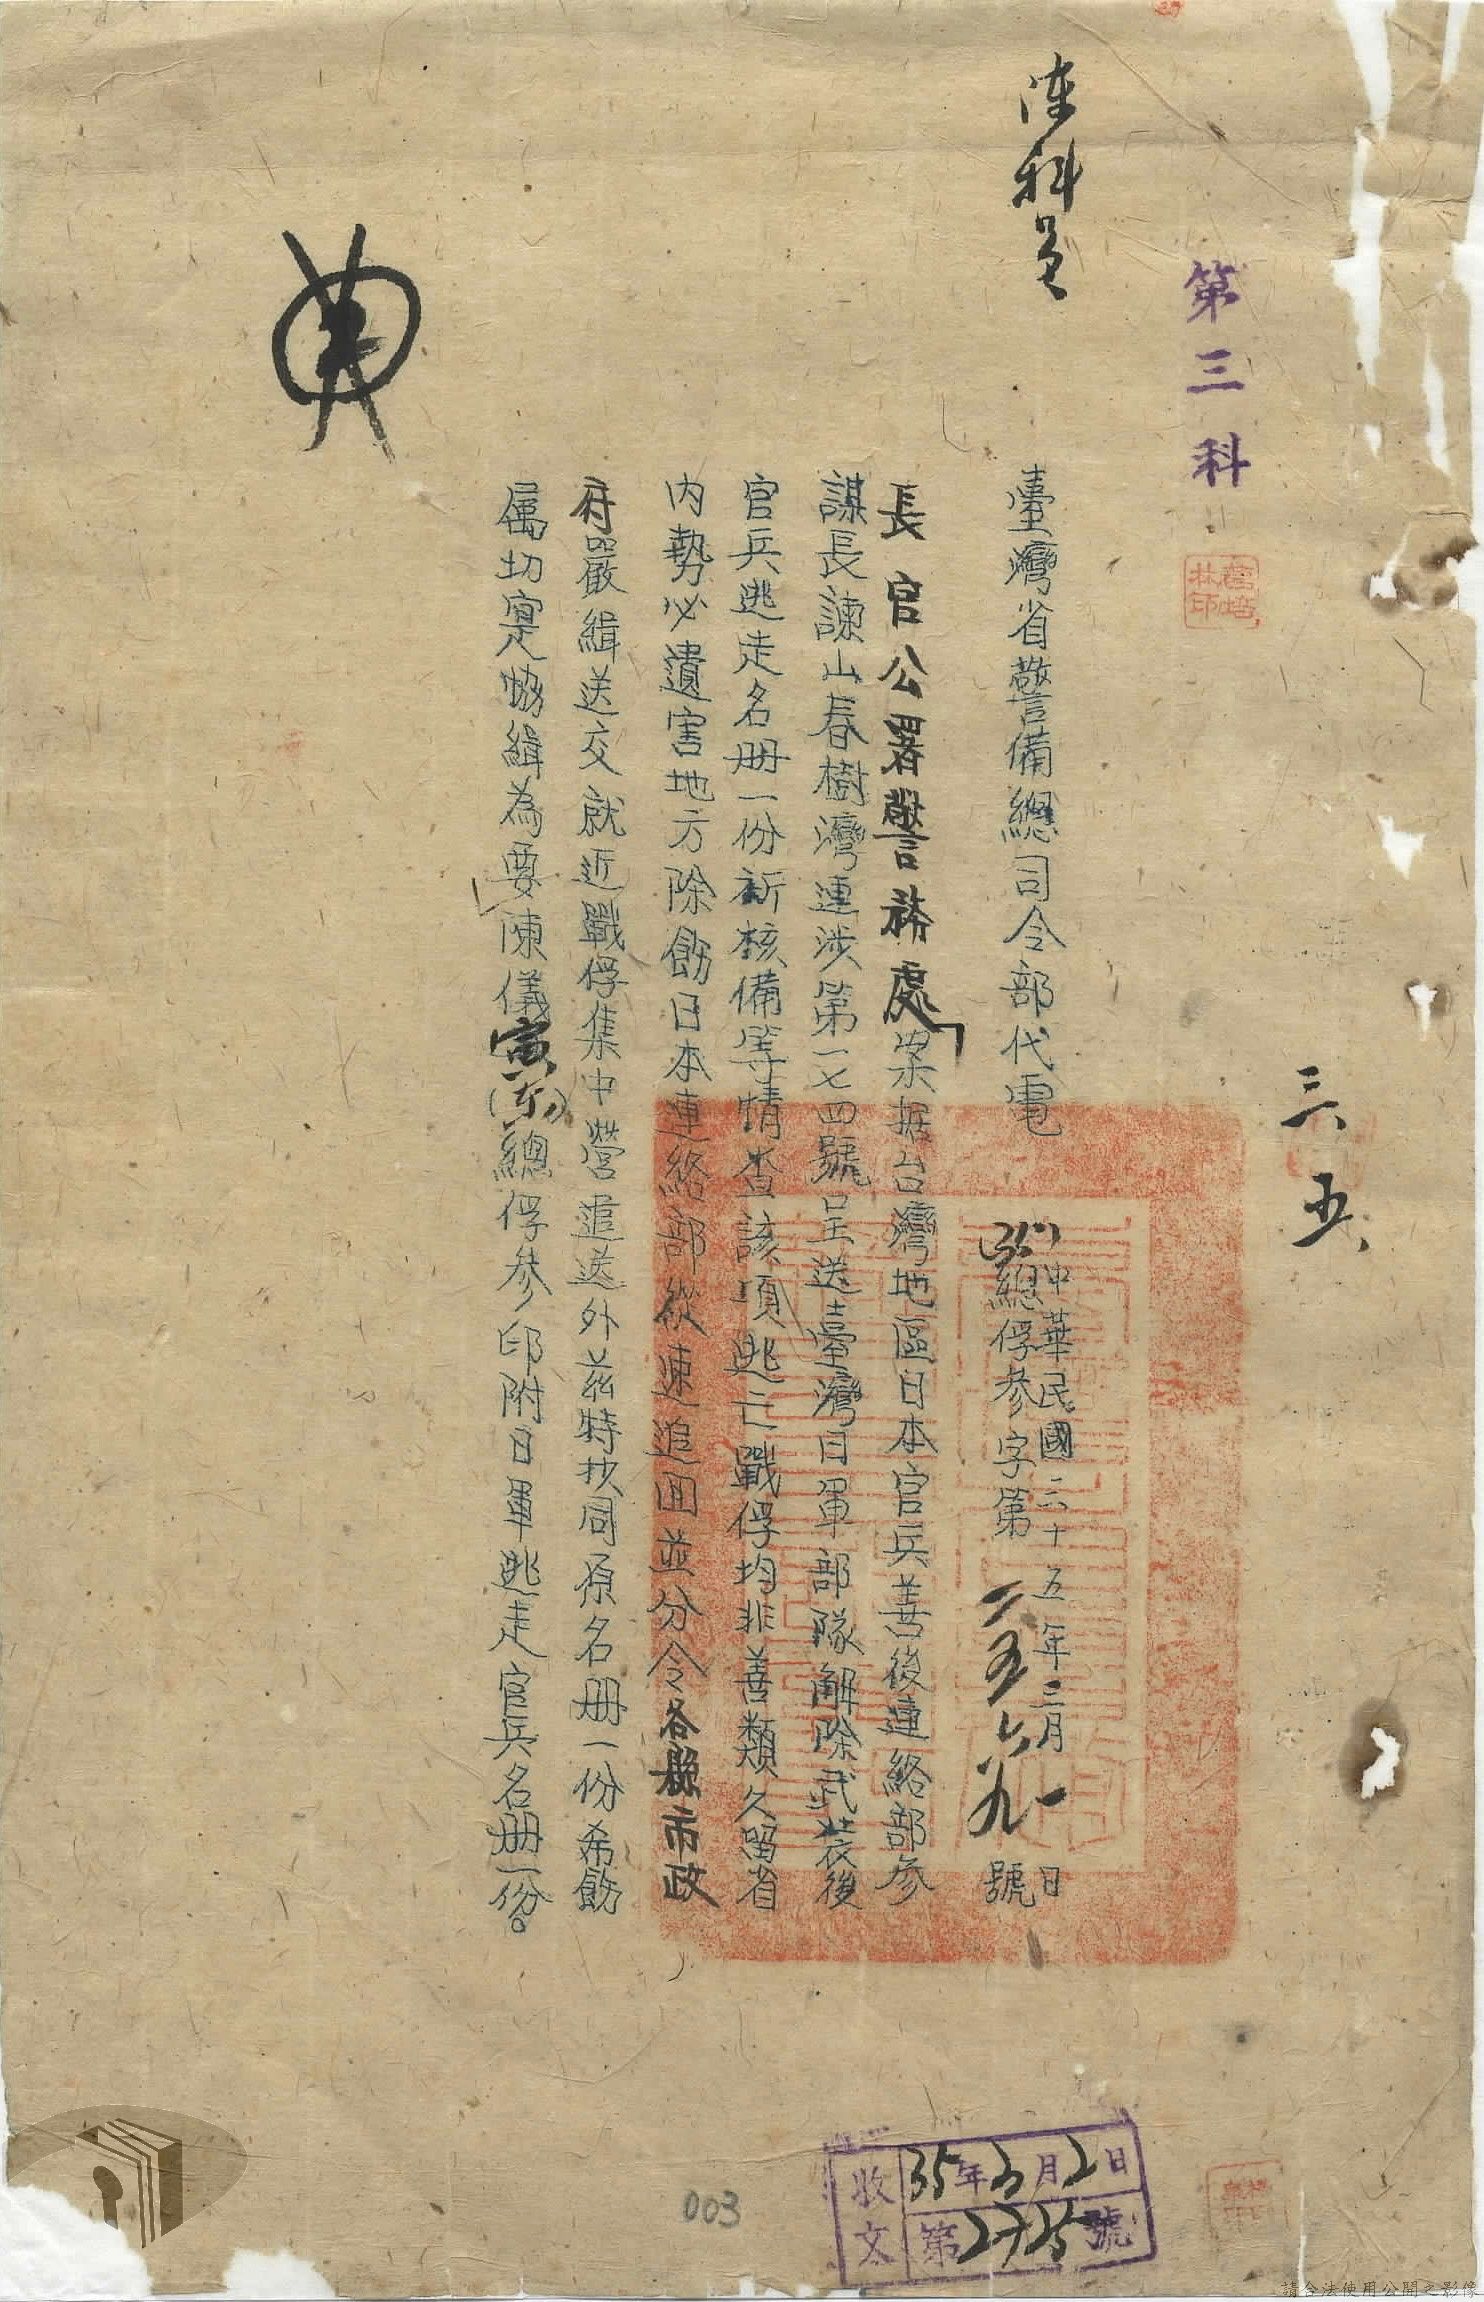 第三科
三、五、
陳科員
臺灣省警備總司令部代電
中華民國三十五年三月一日
(35)總俘參字第二五六九號
長官公署警務處案据台灣地區日本官兵善後連絡部參
謀長諫山春樹灣連涉第一七四號呈送臺灣日軍部隊解除武裝後
官兵逃走名册一份祈核備等情查該項逃亡戰俘均非善類久留省
内勢必遺害地方除飭日本連絡部從速追回並分令各縣市政
府嚴緝送交就近戰俘集中營遣送外茲特抄同原名册一份希飭
屬切寔協緝為要陳儀寅(東)總俘參印附日軍逃走官兵名册一份。
收文
35年3月2日
第2725號
003
請合法使用公開之影像